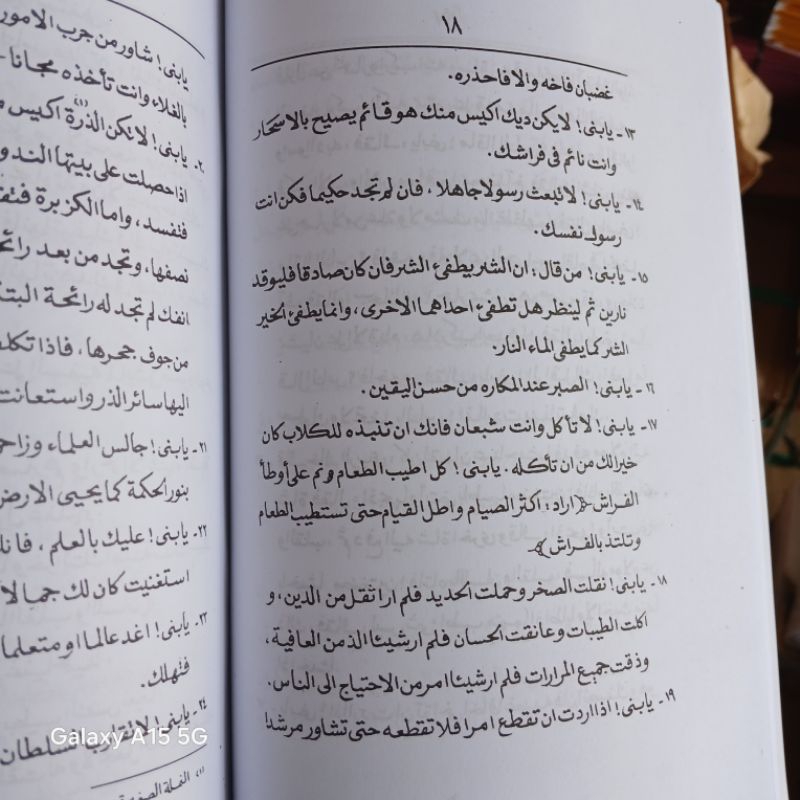 ١٨
غضبان فاخه والا فاحذره.
١٣- يابنى! لايكن ديك اكيس منك هو قائم يصيح بالاسحار
وانت نائم فى فراشك.
١٤- يابنى! لاتبعث رسولا جاهلا، فان لم تجد حكيما فكن انت
رسول نفسك.
١٥- يابنى! من قال: ان الشر يطفئ الشر فان كان صادقا فليوقد
نارين ثم لينظر هل تطفئ احداهما الاخرى، وانما يطفئ الخير
الشر كما يطفى الماء النار.
١٦- يابنى! الصبر عند المكاره من حسن اليقين.
١٧- يابنى! لا تأكل وانت شبعان فانك ان تنبذه للكلاب كان
خيرا لك من ان تأكله. يابنى! كل اطيب الطعام ونم على أوطأ
الفراش (اراد: أكثر الصيام واطل القيام حتى تستطيب الطعام
وتلتذ بالفراش)
١٨- يابنى! نقلت الصخر وحملت الحديد فلم ار اثقل من الدين، و
اكلت الطيبات وعانقت الحسان فلم ار شيئا الذ من العافية،
وذقت جميع المرارات فلم ار شيئا امر من الاحتياج الى الناس.
١٩- يابنى! اذا اردت ان تقطع امرا فلا تقطعه حتى تشاور مرشدا
يابنى! شاور من جرب الامور
بالغلاء وانت تأخذه مجانا
٢٠- يابنى! لا تكن الذرة (١) اكيس
اذا حصلت على بيتها الندو
فتفسد، واما الكزبرة فتف
نصفها، وتجد من بعد رائح
انفك لم تجد له رائحة البت
من جوف جحرها، فاذا تكلف
اليها سائر الذر واستعانت
٢١- يابنى! جالس العلماء وزاحم
بنور الحكمة كما يحيى الارض
٢٢- يابنى! عليك بالعلم، فانك
استغنيت كان لك جمالا
٢٣- يابنى! اغد عالما او متعلما
فتهلك.
٢٤- يابنى! لا تقارب السلطان
(١) النملة الصغيرة
Galaxy A15 5G